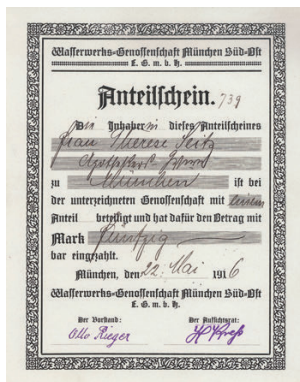 Wasserwerks-Genossenschaft München Süd-Ost
E. G. m. b. H.
Anteilschein. 739
Die Inhaberin dieses Anteilscheines
Frau Therese Seitz
Apothekers
zu München ist bei
der unterzeichneten Genossenschaft mit einem
Anteil beteiligt und hat dafür den Betrag mit
Mark fünfzig
bar eingezahlt.
München, den 22. Mai 1916
Wasserwerks-Genossenschaft München Süd-Ost
E. G. m. b. H.
Der Vorstand: Der Aufsichtsrat:
Otto Rieger